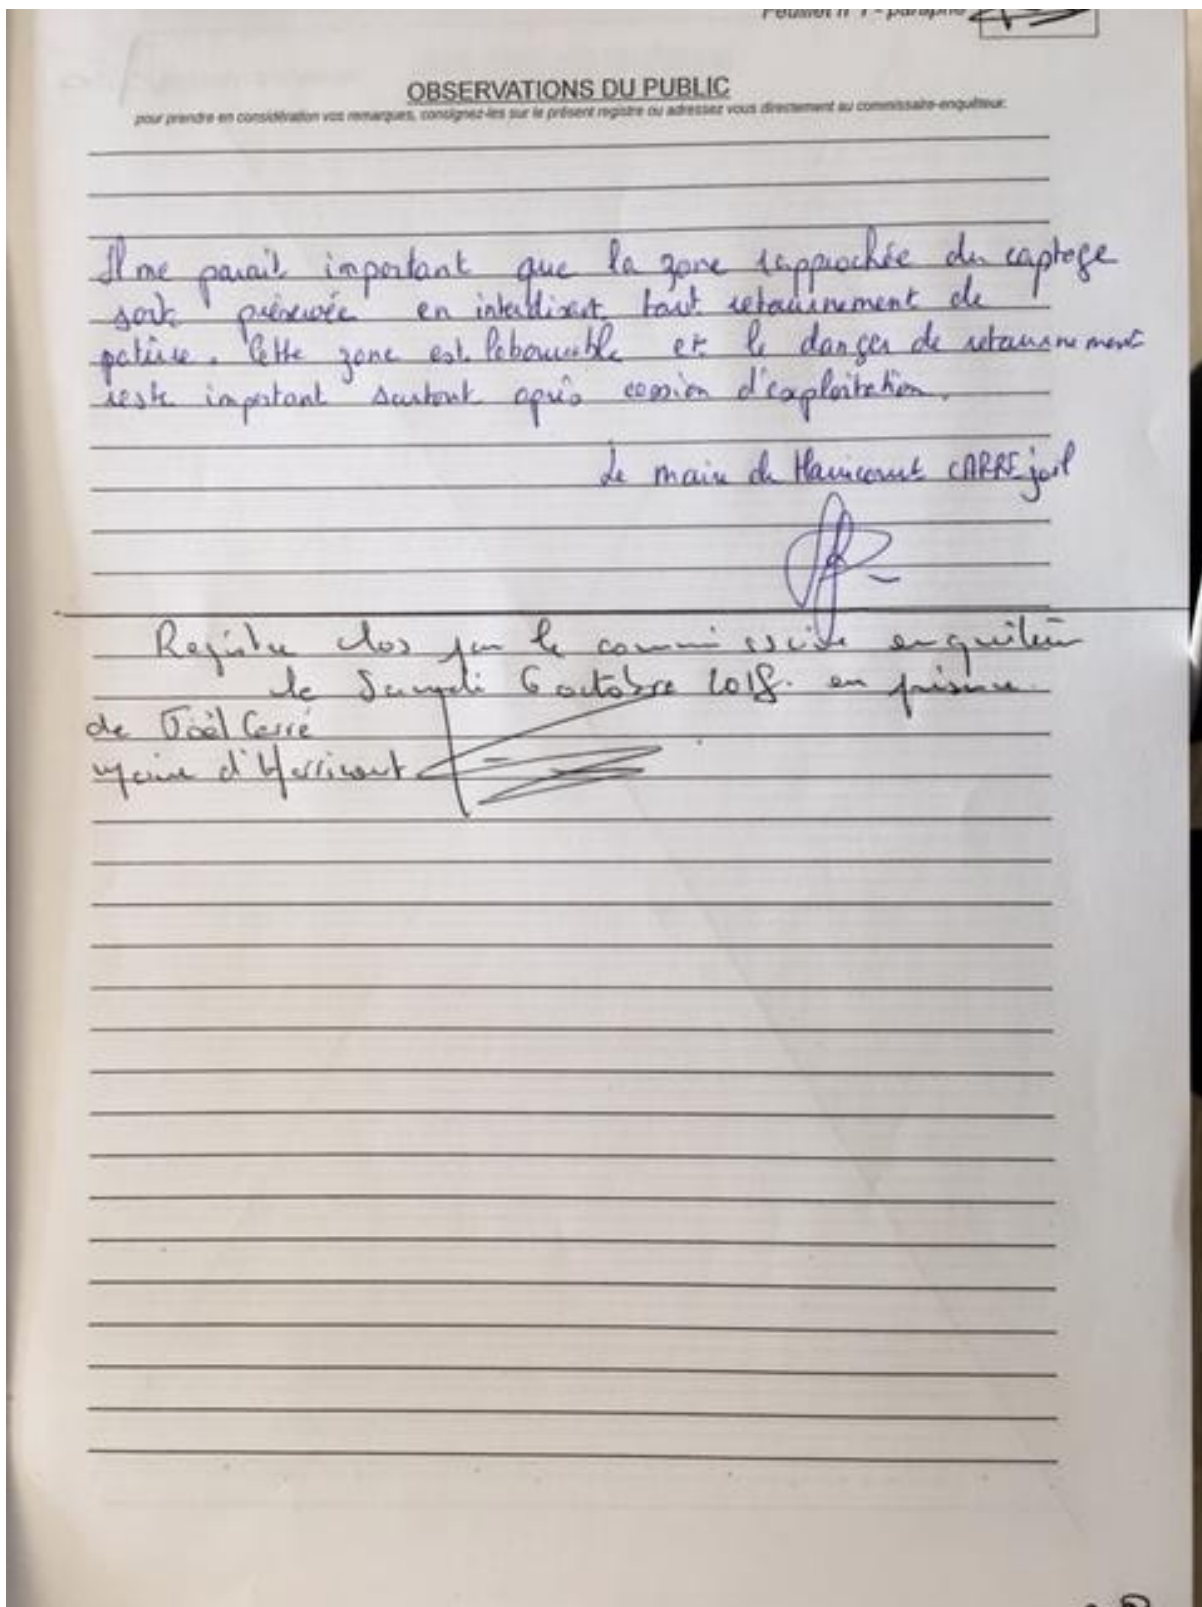 Feuillet n° 1 - paraphe
OBSERVATIONS DU PUBLIC
pour prendre en considération vos remarques, consignez-les sur le présent registre ou adressez vous directement au commissaire-enquêteur.
Il me parait important que la zone rapprochée du captage
soit préservée en interdisant tout retournement de
pature. Cette zone est labourable et le danger de retournement
reste important surtout après cession d'exploitation.
Le maire de Harricourt CARRE joel
Registre clos par le commissaire enquêteur
le Samedi 6 octobre 2018. en présence
de Joël Carré
Maire d'Harricourt